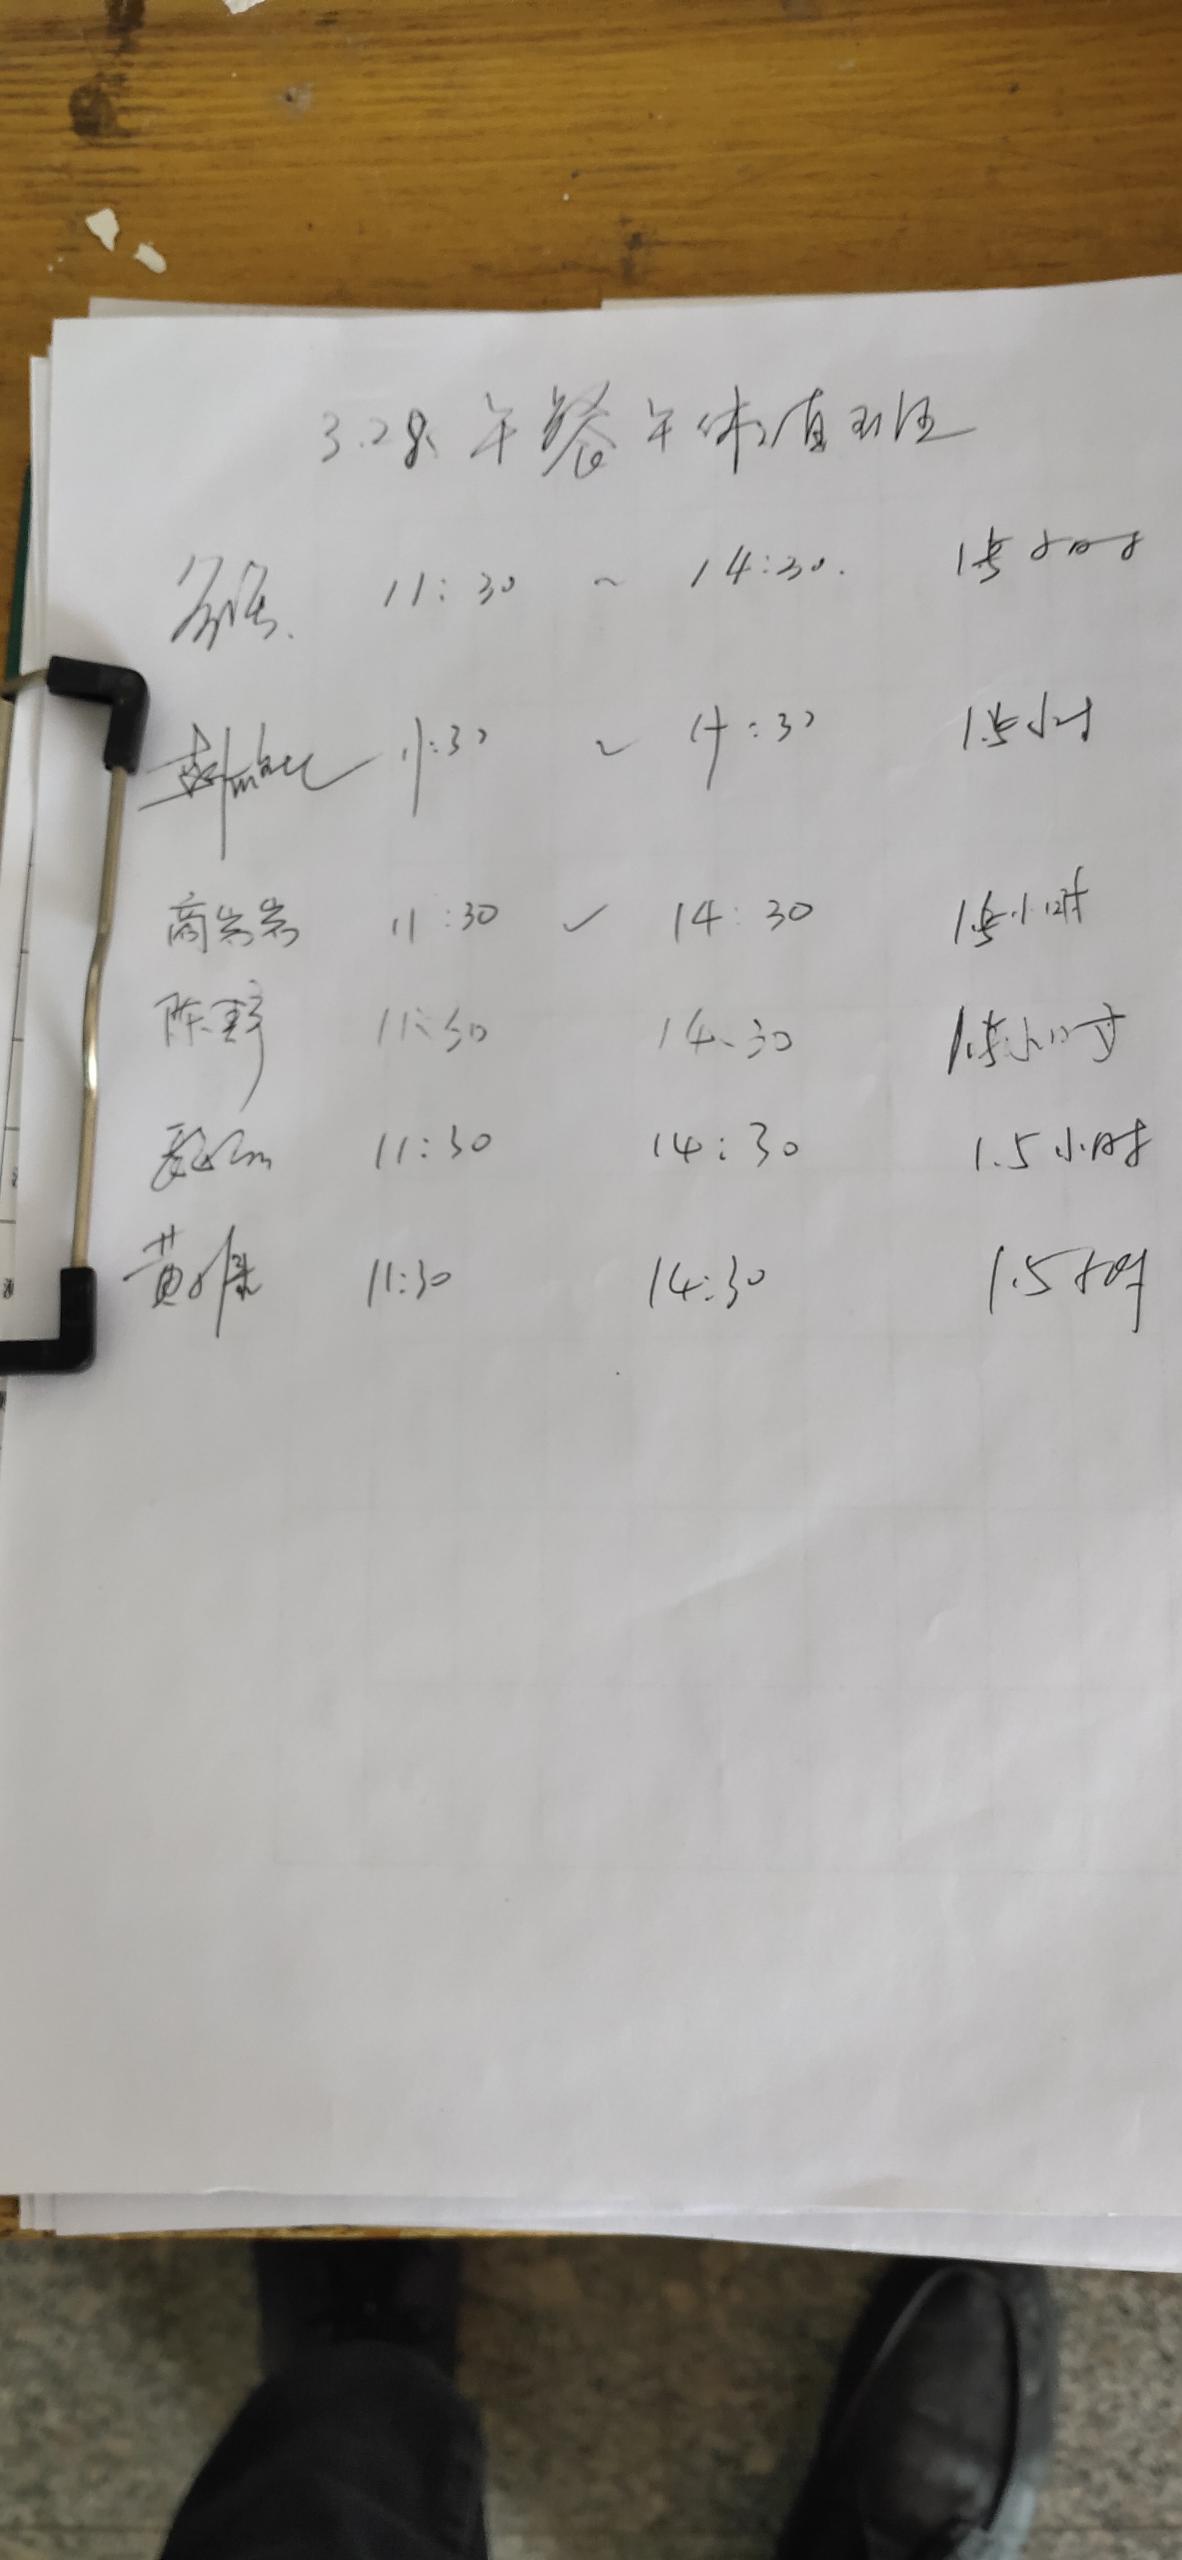 3.28 午餐午休值班
11:30 ~ 14:30. 1.5小时
11:30 ~ 14:30 1.5小时
商岩岩 11:30 ~ 14:30 1.5小时
陈野 11:30 14:30 1.5小时
11:30 14:30 1.5小时
黄雅 11:30 14:30 1.5小时